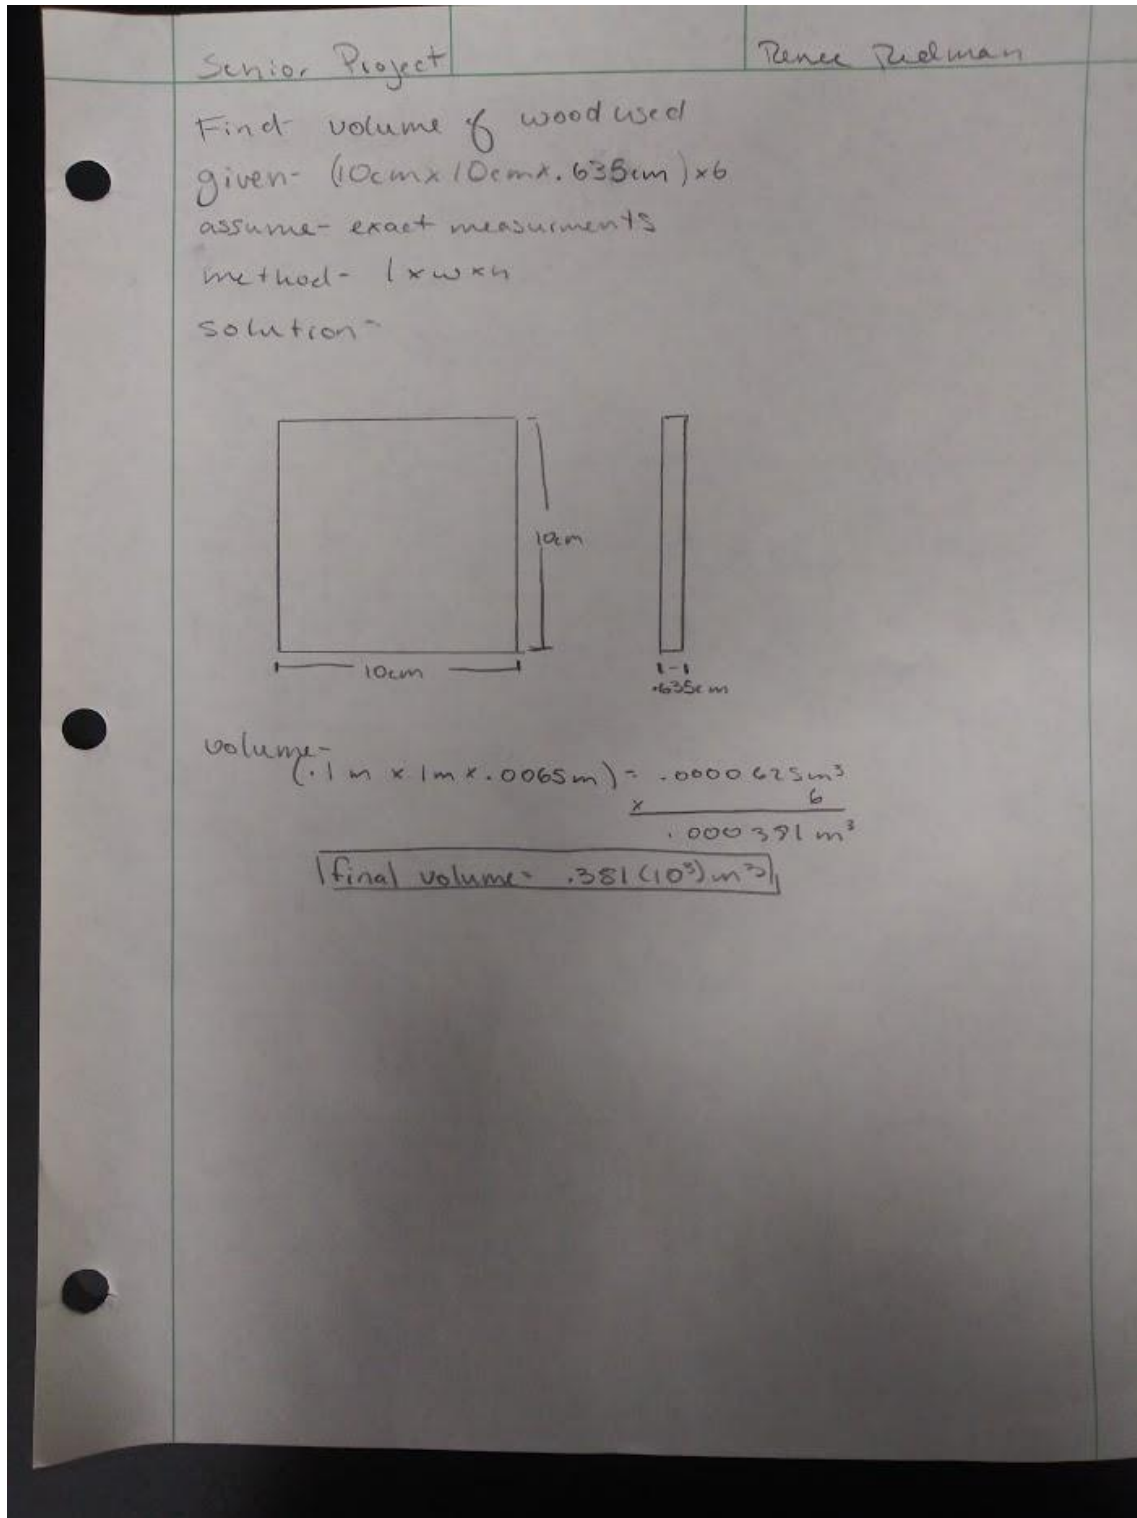 Senior Project
Renee Redman
Find volume of wood used
given- (10cm x 10cm x .635cm) x6
assume- exact measurments
method- l x w x h
solution-
10cm
10cm
.635cm
volume-
(.1m x .1m x .0065m) = .0000625m³
x 6
.000381m³
final volume- .381(10³)m³